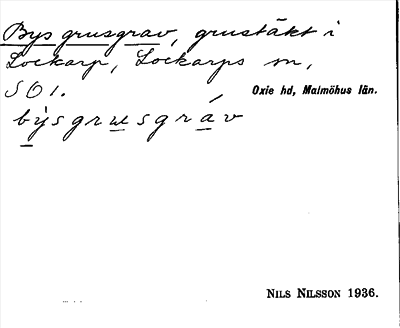 Bys grusgrav, grustäkt i
Lockarp, Lockarps sn,
SO1.
Oxie hd, Malmöhus län.
bỳsgrusgráv
NILS NILSSON 1936.